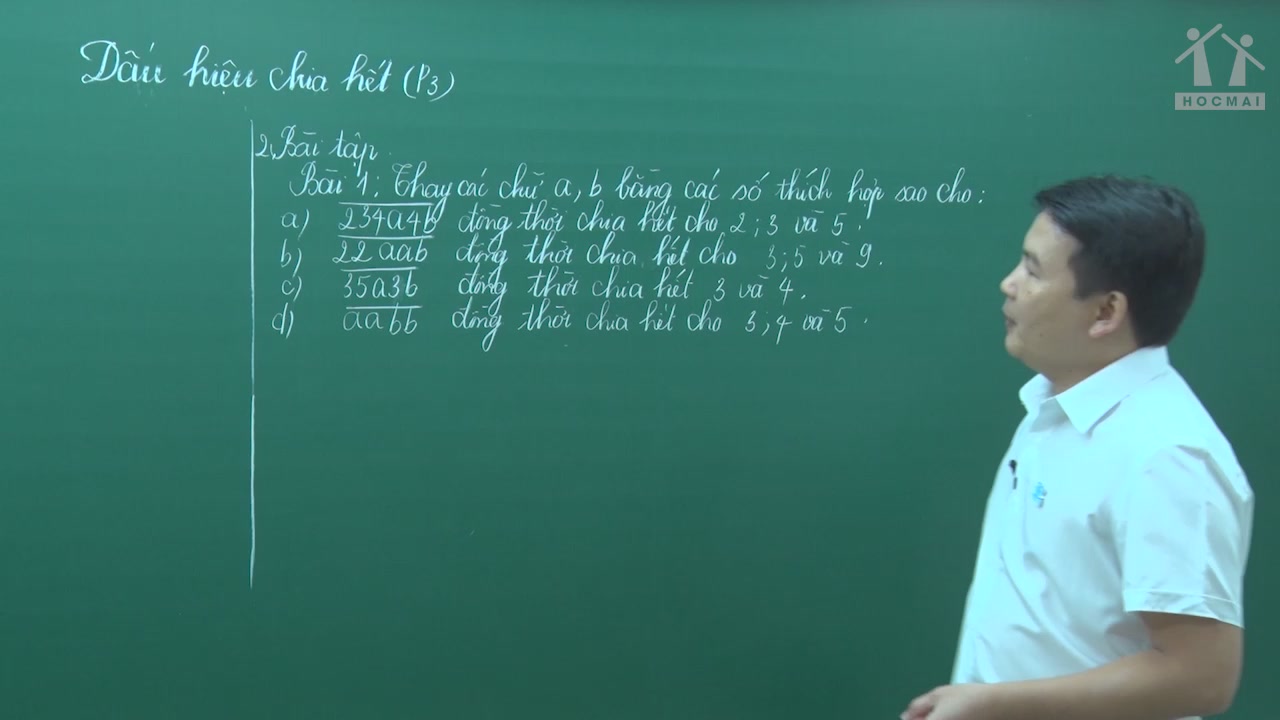 Dấu hiệu chia hết (P3)
HOCMAI
2, Bài tập
Bài 1: Thay các chữ a, b bằng các số thích hợp sao cho:
a) 234a4b đồng thời chia hết cho 2; 3 và 5.
b) 22aab đồng thời chia hết cho 3; 5 và 9.
c) 35a3b đồng thời chia hết 3 và 4.
d) aabb đồng thời chia hết cho 3; 4 và 5.